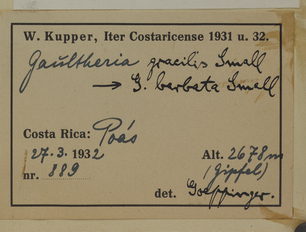 W. Kupper, Iter Costaricense 1931 u. 32.
Gaultheria gracilis Small
→ G. barbata Small
Costa Rica: Poás
27. 3. 1932 Alt. 2678 m
(Gipfel)
nr. 889
det. Goeppinger.